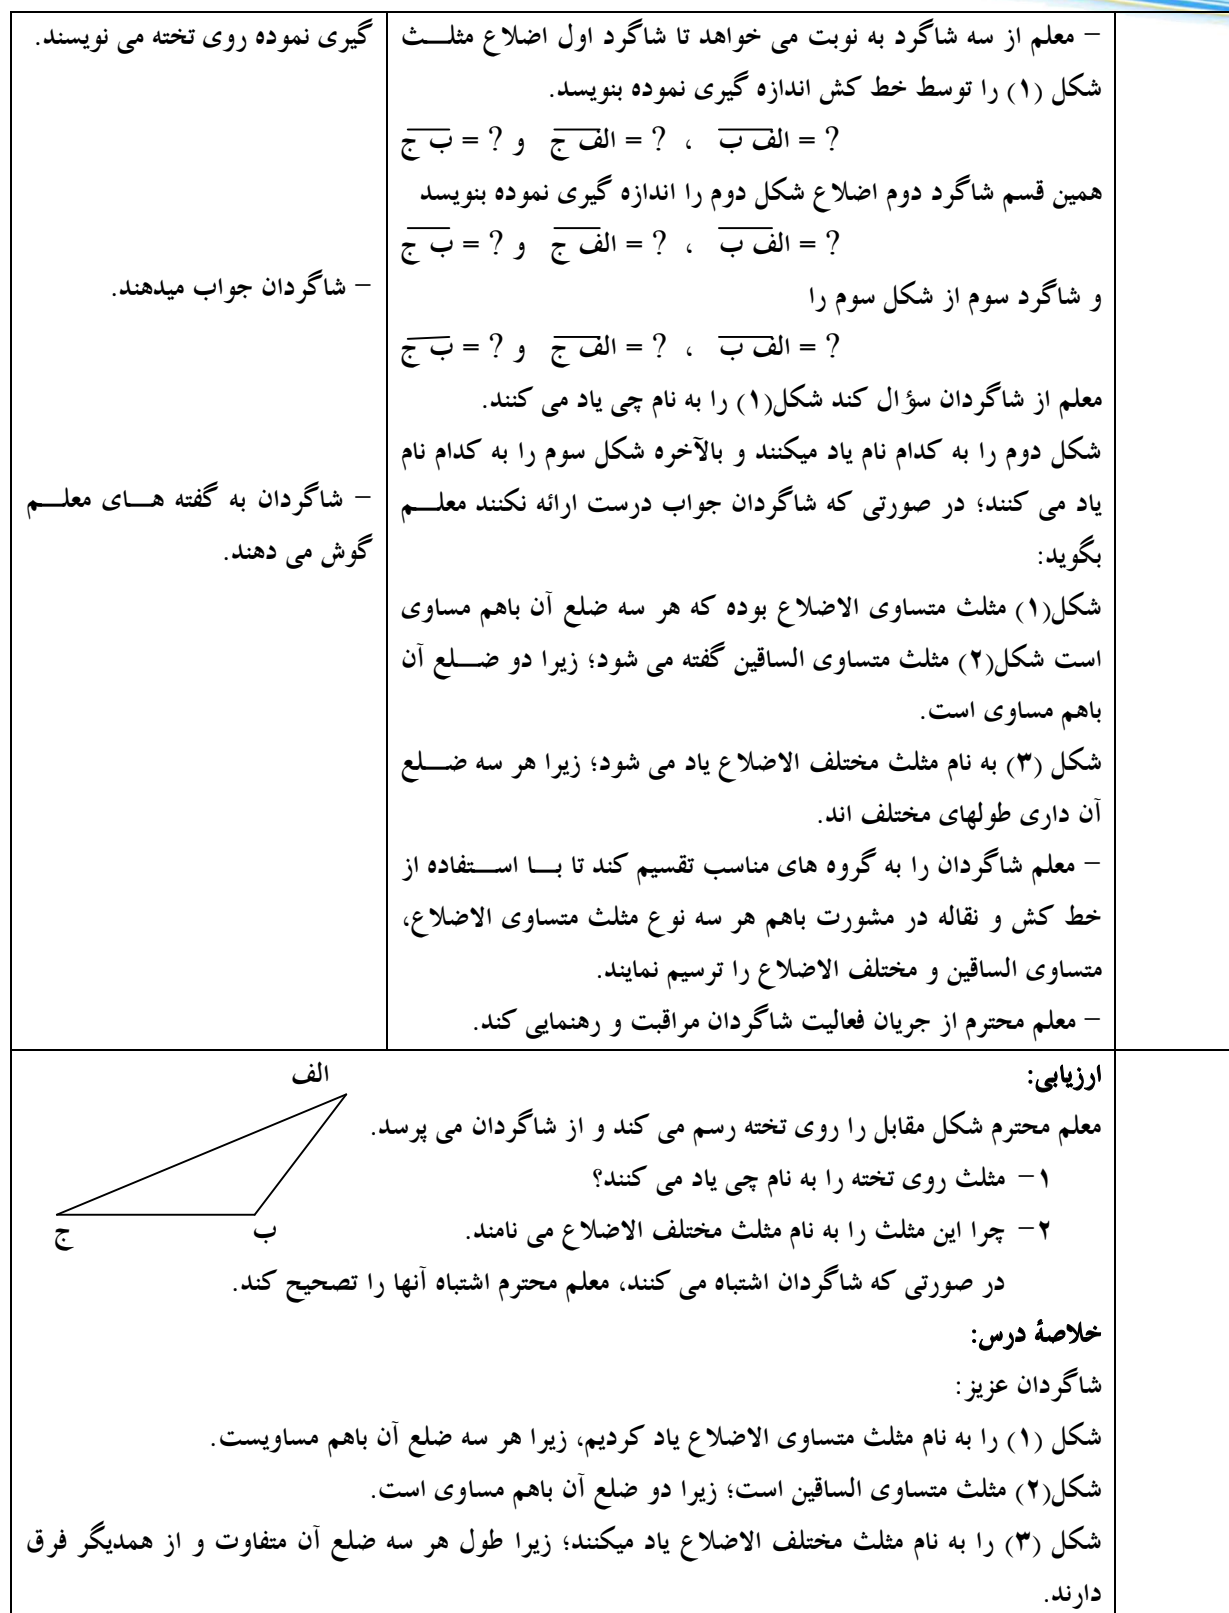 – معلم از سه شاگرد به نوبت می خواهد تا شاگرد اول اضلاع مثلث
شکل (۱) را توسط خط کش اندازه گیری نموده بنویسد.
? = الف ب ، ? = الف ج و ? = ب ج
همین قسم شاگرد دوم اضلاع شکل دوم را اندازه گیری نموده بنویسد
? = الف ب ، ? = الف ج و ? = ب ج
و شاگرد سوم از شکل سوم را
? = الف ب ، ? = الف ج و ? = ب ج
معلم از شاگردان سؤال کند شکل(۱) را به نام چی یاد می کنند.
شکل دوم را به کدام نام یاد میکنند و بالآخره شکل سوم را به کدام نام
یاد می کنند؛ در صورتی که شاگردان جواب درست ارائه نکنند معلم
بگوید:
شکل(۱) مثلث متساوی الاضلاع بوده که هر سه ضلع آن باهم مساوی
است شکل(۲) مثلث متساوی الساقین گفته می شود؛ زیرا دو ضلع آن
باهم مساوی است.
شکل (۳) به نام مثلث مختلف الاضلاع یاد می شود؛ زیرا هر سه ضلع
آن داری طولهای مختلف اند.
– معلم شاگردان را به گروه های مناسب تقسیم کند تا با استفاده از
خط کش و نقاله در مشورت باهم هر سه نوع مثلث متساوی الاضلاع،
متساوی الساقین و مختلف الاضلاع را ترسیم نمایند.
– معلم محترم از جریان فعالیت شاگردان مراقبت و رهنمایی کند.
گیری نموده روی تخته می نویسند.
– شاگردان جواب میدهند.
– شاگردان به گفته های معلم
گوش می دهند.
ارزیابی:
معلم محترم شکل مقابل را روی تخته رسم می کند و از شاگردان می پرسد.
۱– مثلث روی تخته را به نام چی یاد می کنند؟
۲– چرا این مثلث را به نام مثلث مختلف الاضلاع می نامند.
در صورتی که شاگردان اشتباه می کنند، معلم محترم اشتباه آنها را تصحیح کند.
الف
ب
ج
خلاصۀ درس:
شاگردان عزیز:
شکل (۱) را به نام مثلث متساوی الاضلاع یاد کردیم، زیرا هر سه ضلع آن باهم مساویست.
شکل(۲) مثلث متساوی الساقین است؛ زیرا دو ضلع آن باهم مساوی است.
شکل (۳) را به نام مثلث مختلف الاضلاع یاد میکنند؛ زیرا طول هر سه ضلع آن متفاوت و از همدیگر فرق
دارند.